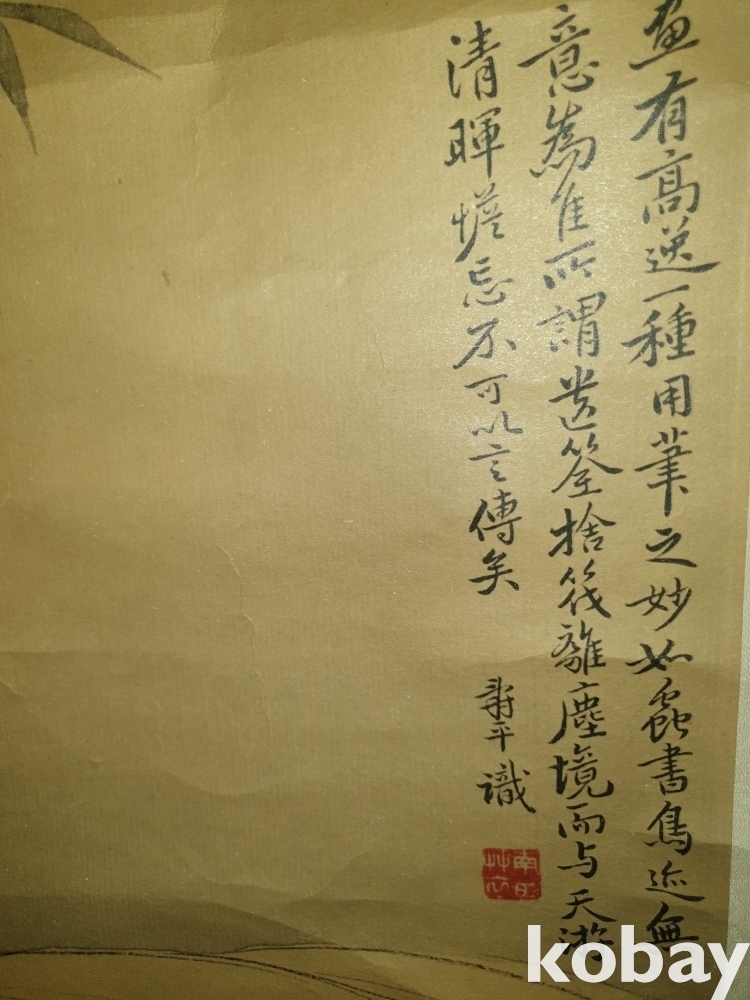 畫有高逸一種用筆之妙如蟲書鳥迹無
意為佳所謂遺筌捨筏離塵境而与天游
清暉澹忘不可以言傳矣
壽平識
kobay